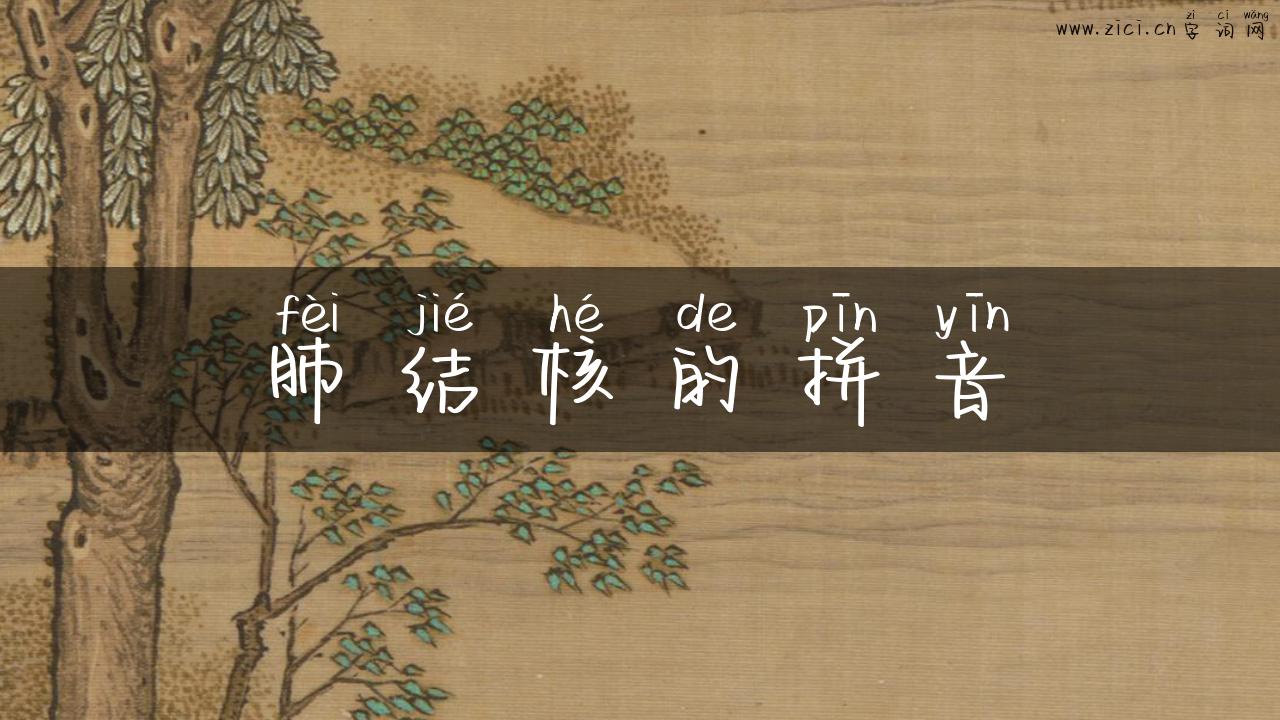 zì cí wǎng
www.zici.cn 字词网
fèi jié hé de pīn yīn
肺结核的拼音